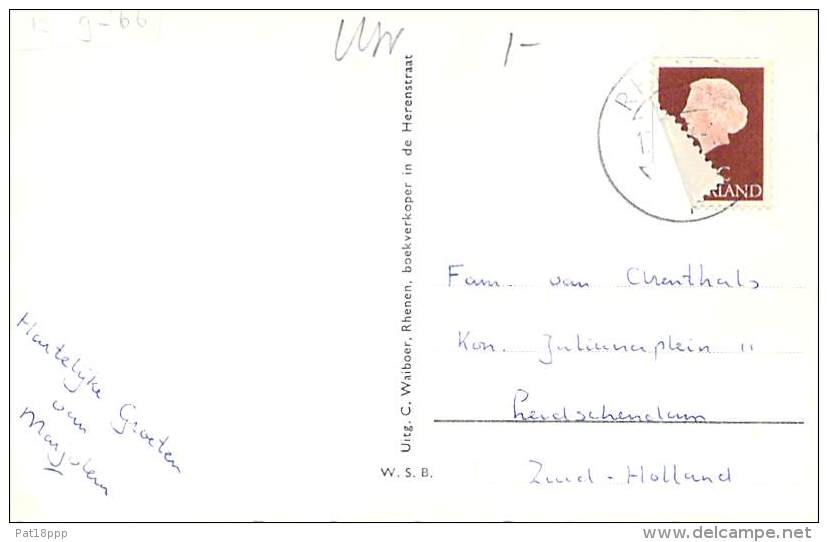 9-66
1-
Hartelijke Groeten
van
Marjolein
Uitg. C. Waiboer, Rhenen, boekverkoper in de Herenstraat
W. S. B.
C
RLAND
Fam. van Arenthals
Kon. Julianaplein 11
Leidschendam
Zuid-Holland
Pat18ppp
www.delcampe.net